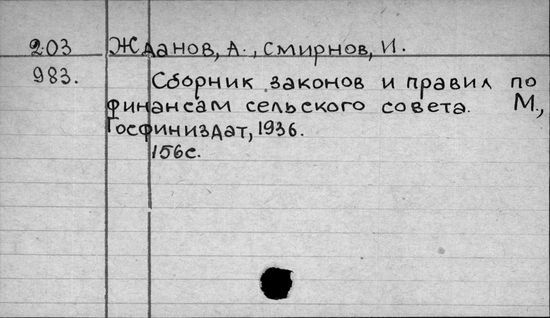 203 Жданов, А., Смирнов, И.
983. Сборник законов и правил по
финансам сельского совета. М.,
Госфиниздат, 1936.
156с.